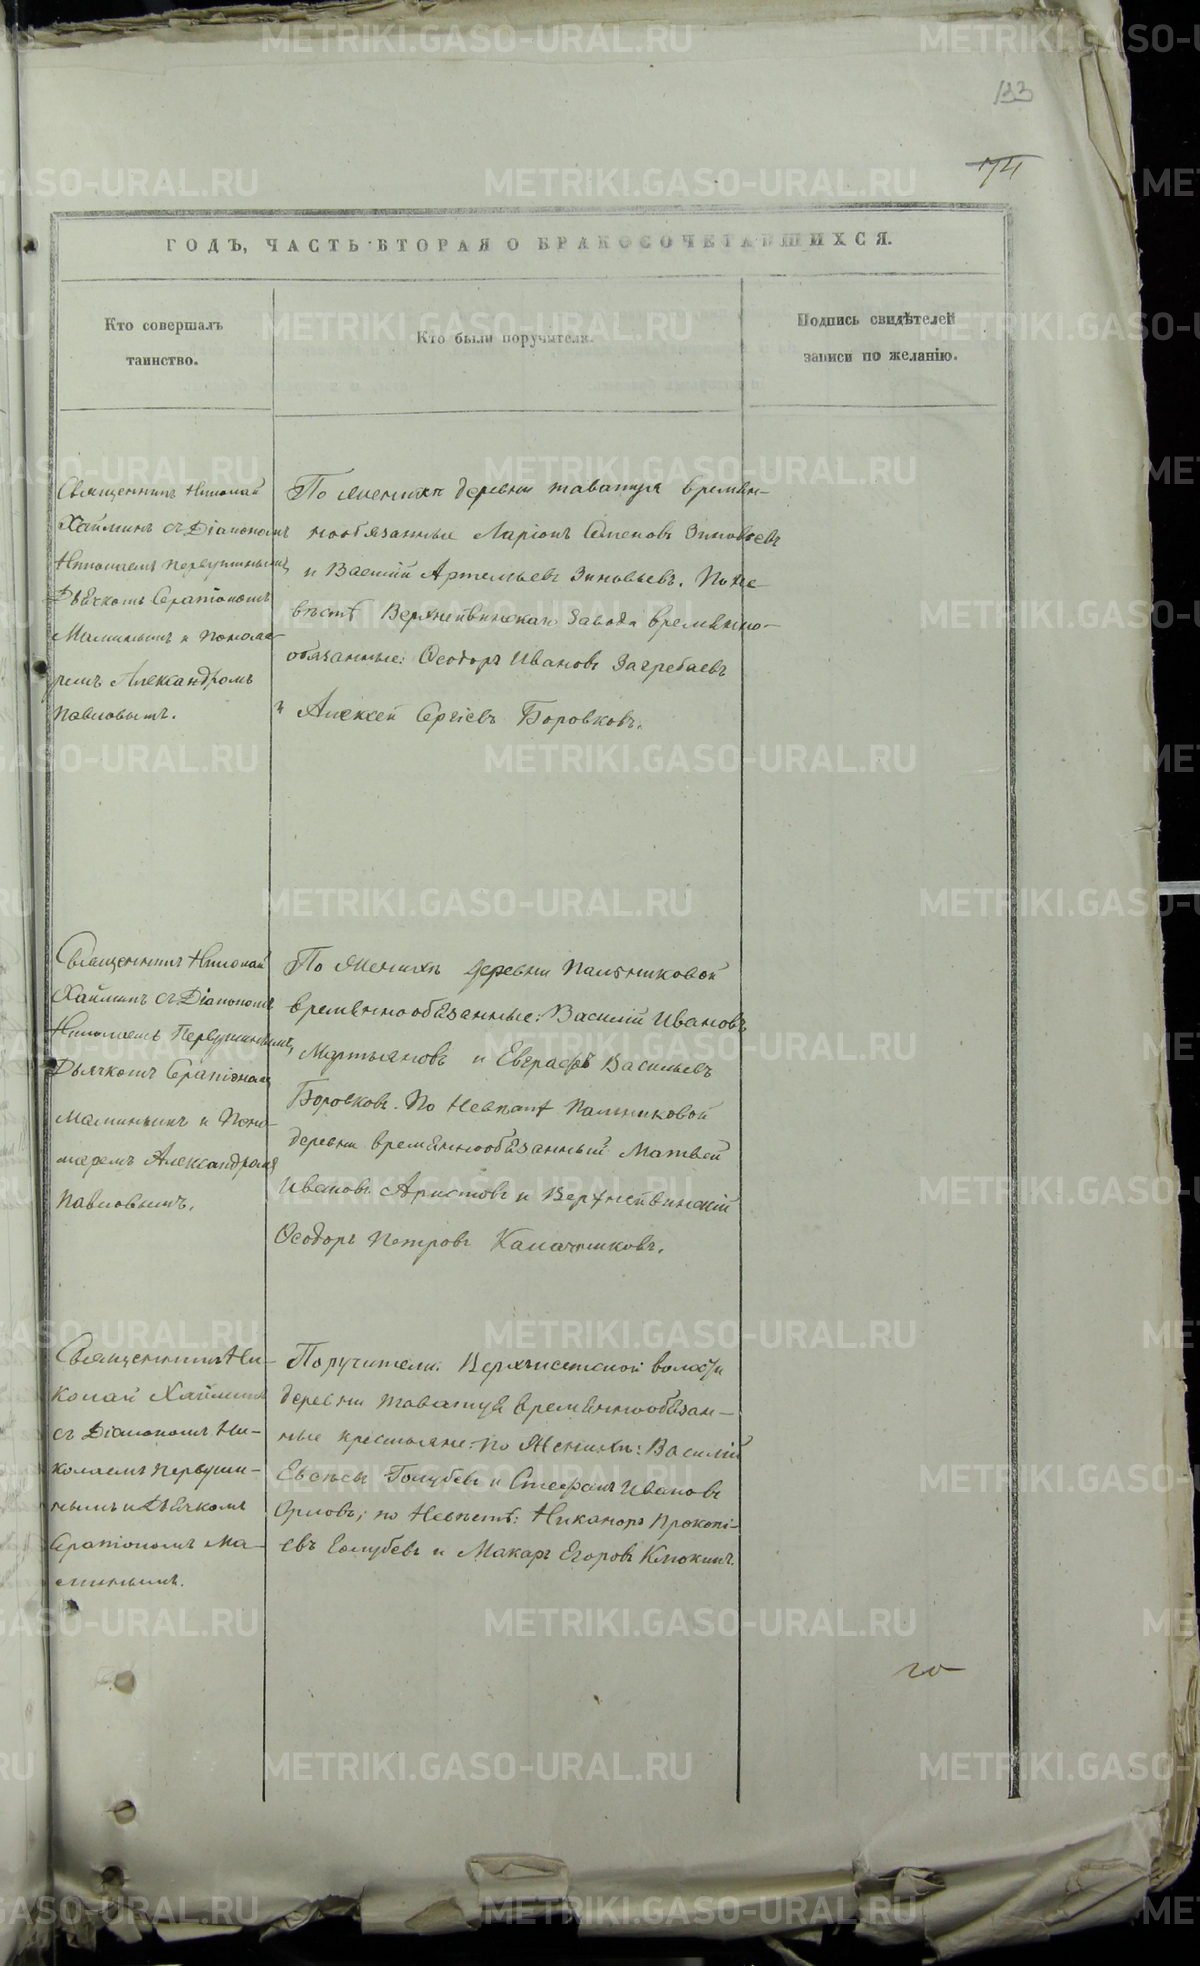 133
174
ГОДЪ, ЧАСТЬ ВТОРАЯ О БРАКОСОЧЕТАВШИХСЯ.
Кто совершалъ
таинство.
Кто были поручители.
Подпись свидѣтелей
записи по желанію.
Священникъ Николай
Хайминъ съ Діакономъ
Николаемъ Первушинымъ,
Дьячкомъ Серапіономъ
Маминымъ и Понома-
ремъ Александромъ
Павловымъ.
По женихѣ деревни Таватуя времян-
нообязанные Ларіонъ Семеновъ Зиновьевъ
и Василій Артемьевъ Зиновьевъ. По не-
вѣстѣ Верхнейвинскаго завода времянно-
обязанные: Ѳеодоръ Ивановъ Загребаевъ
и Алексей Сергіевъ Боровковъ.
Священникъ Николай
Хайминъ съ Діакономъ
Николаемъ Первушинымъ,
Дьячкомъ Серапіономъ
Маминымъ и Поно-
маремъ Александромъ
Павловымъ.
По женихѣ деревни Пальниковой
времяннообязанные: Василій Ивановъ
Мартьяновъ и Евграфъ Васильевъ
Боровковъ. По невѣстѣ Пальниковой
деревни времяннообязанный Матвей
Ивановъ Аристовъ и Верхнейвинскій
Ѳеодоръ Петровъ Калачниковъ.
Священникъ Ни-
колай Хайминъ
съ Діакономъ Ни-
колаемъ Первуши-
нымъ и Дьячкомъ
Серапіономъ Ма-
минымъ.
Поручители: Верхъисетской волости
деревни Таватуя времяннообязан-
ные крестьяне по женихѣ: Василій
Евсѣевъ Голубевъ и Стефанъ Ивановъ
Орловъ; по невѣстѣ: Никаноръ Прокопі-
евъ Голубевъ и Макаръ Егоровъ Клюкинъ.
METRIKI.GASO-URAL.RU